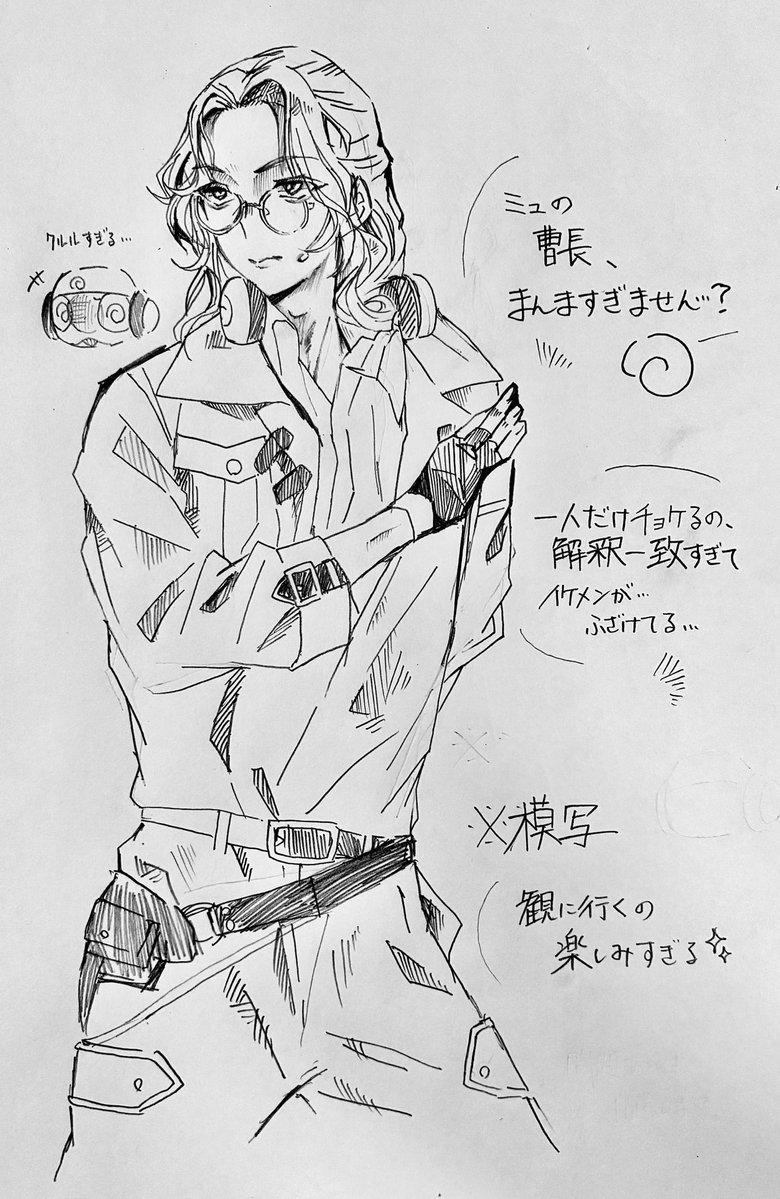 クルルすぎる…
ミュの
曹長、
まんますぎません…?
一人だけチョケるの、
解釈一致すぎて
イケメンが…
ふざけてる…
※模写
観に行くの
楽しみすぎる